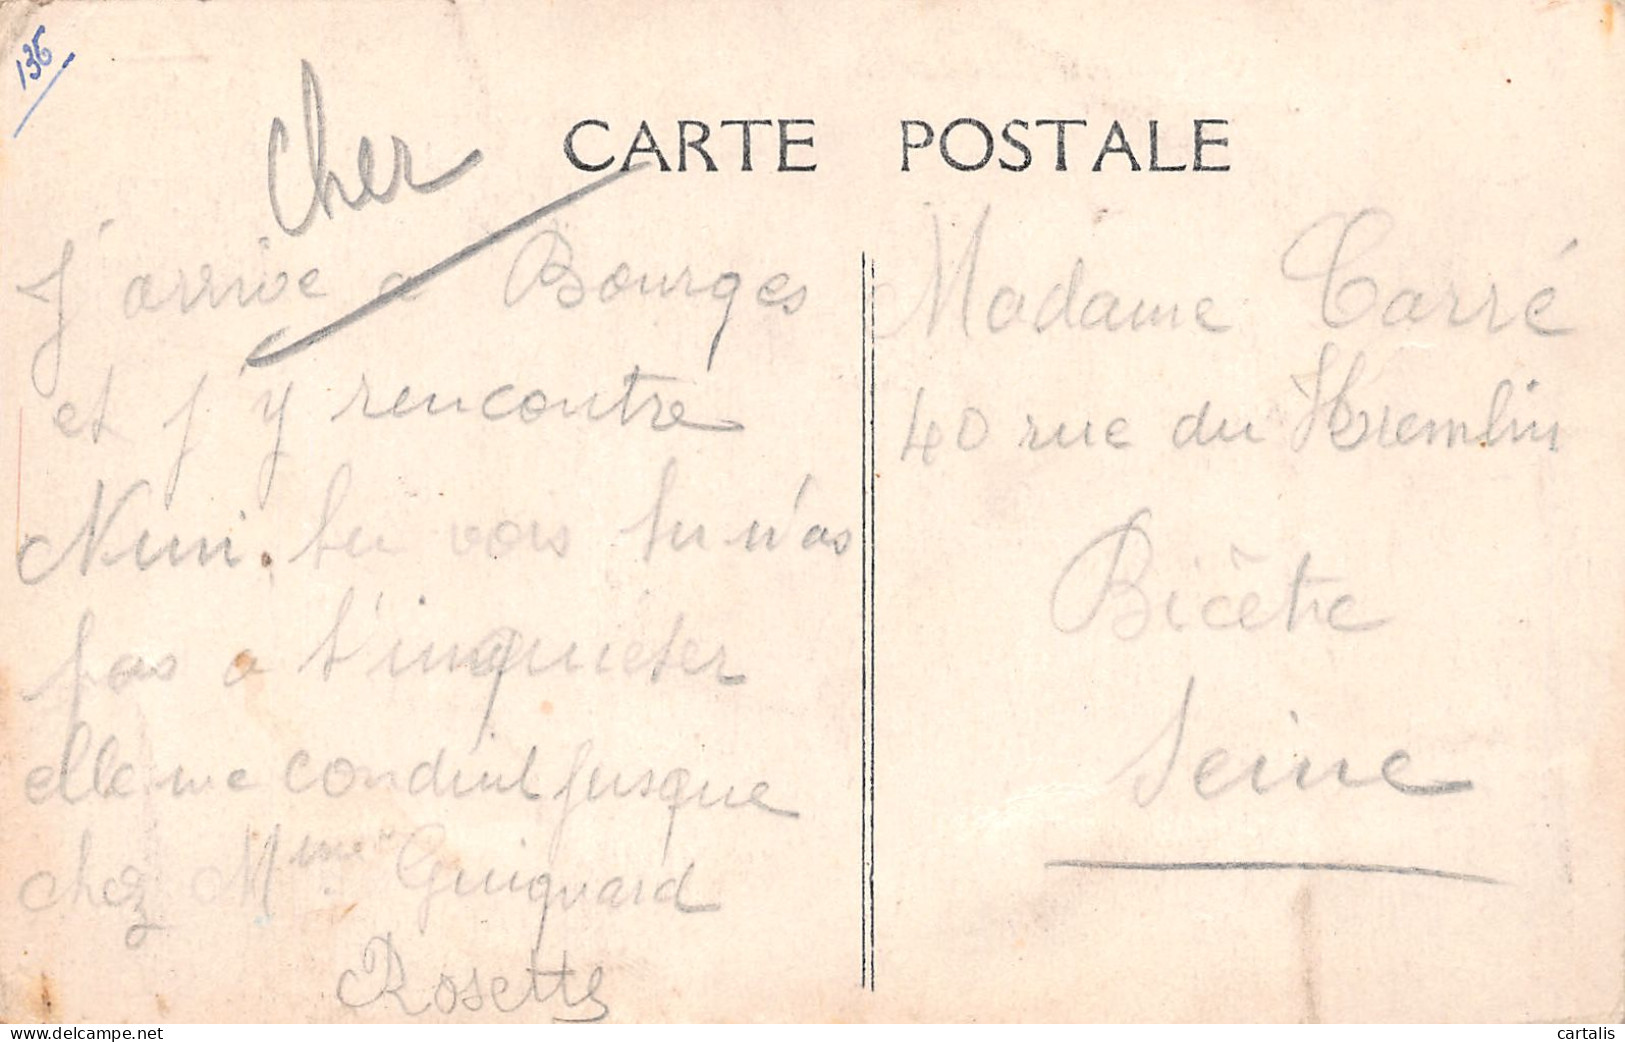 136
Cher
CARTE POSTALE
J'arrive a Bourges
et j'y rencontre
Nini. tu vois tu n'as
pas a t'inquiéter
elle me conduit jusque
chez Mme Guignard
Rosette
Madame Carré
40 rue du Kremlin
Bicêtre
Seine
www.delcampe.net
cartalis